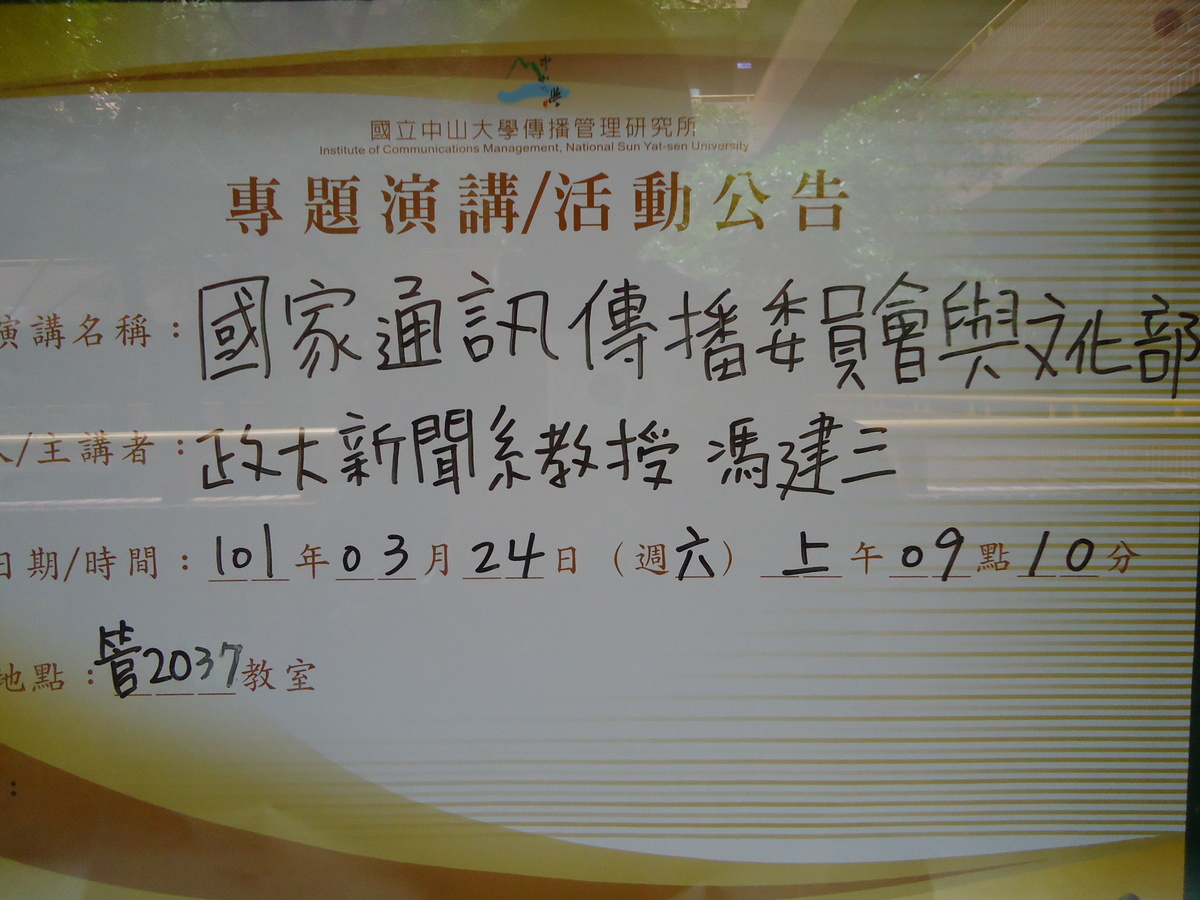 國立中山大學傳播管理研究所
Institute of Communications Management, National Sun Yat-sen University
專題演講/活動公告
演講名稱：國家通訊傳播委員會與文化部
人/主講者：政大新聞系教授 馮建三
日期/時間：101年03月24日（週六）上午09點10分
地點：管2037教室